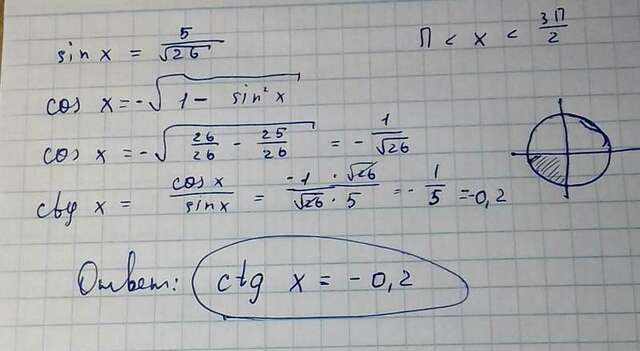 sin x = 5/√26    π < x < 3π/2
cos x = -√(1 - sin² x)
cos x = -√(26/26 - 25/26) = - 1/√26
ctg x = cos x/sin x = -1 · √26/√26 · 5 = - 1/5 = -0,2
Ответ: ctg x = - 0,2